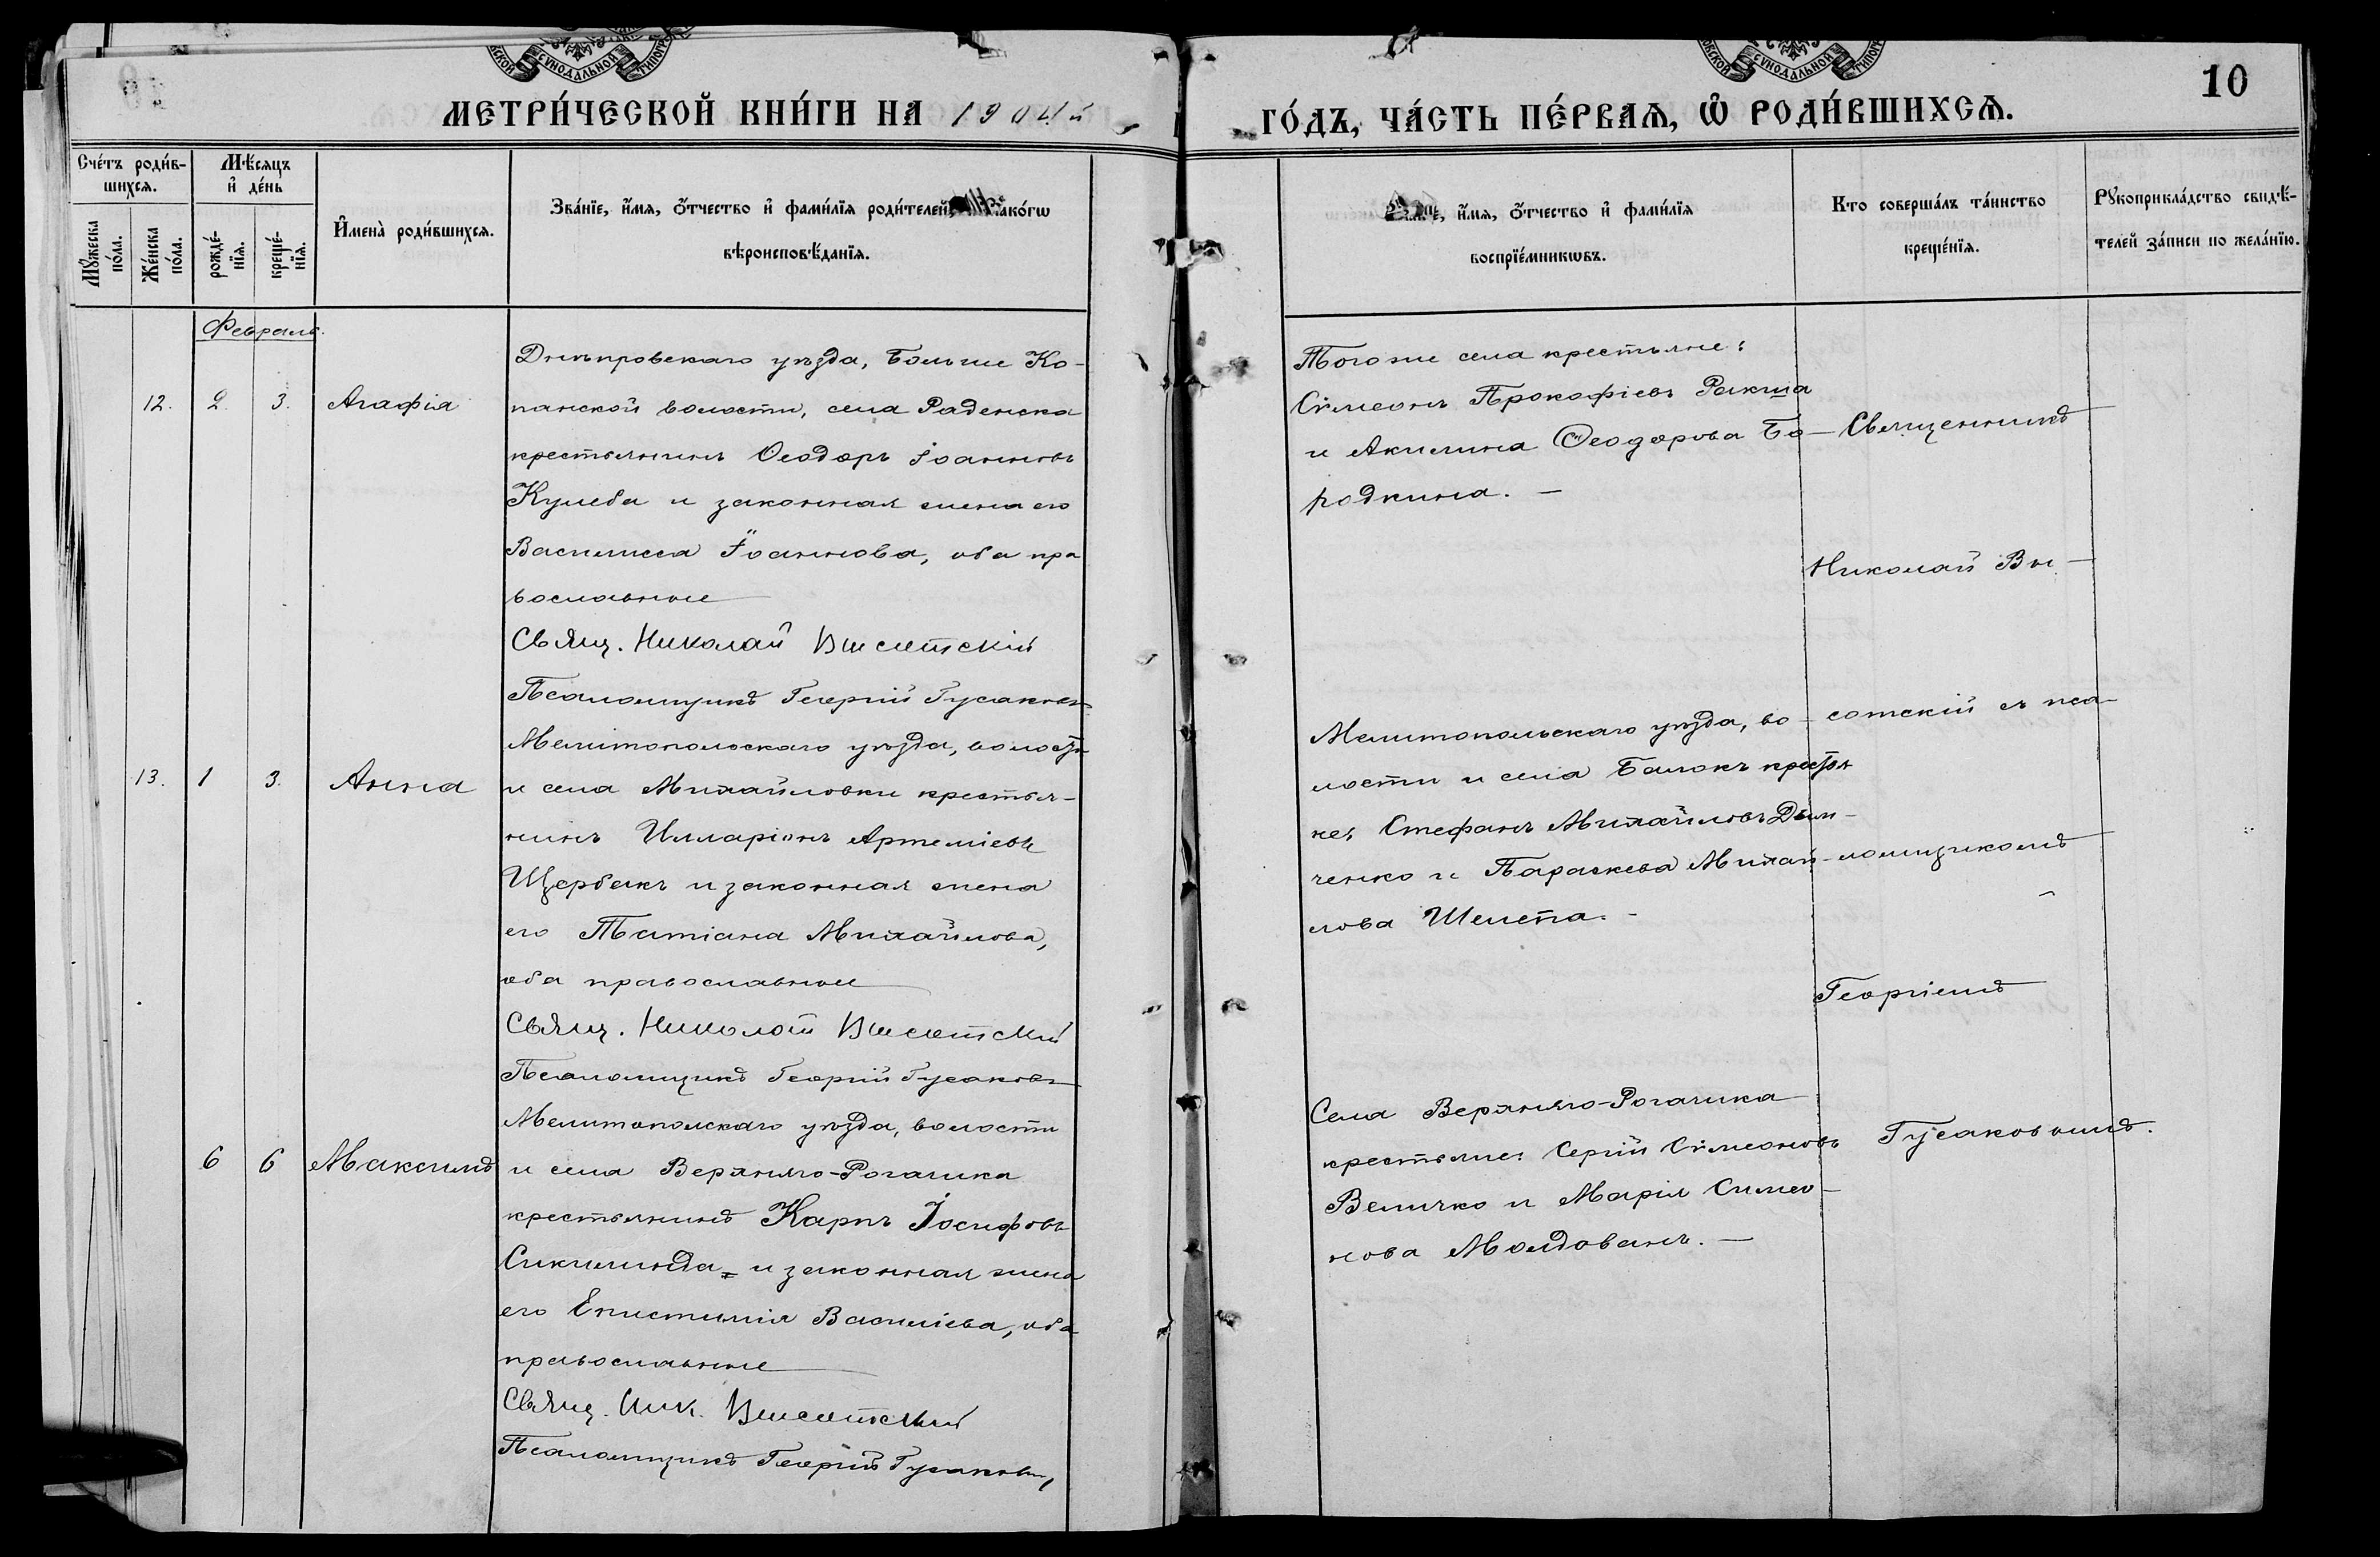 МЕТРИ́ЧЕСКОЙ КНИ́ГИ НА 1904й
ГО́ДЪ, ЧА́СТЬ ПЕ́РВАѦ, Ѡ҆ РОДИ́ВШИХСѦ.
10
Сче́тъ роди́в-
шихсѧ.
Мѣ́сяцъ
и҆ де́нь
Мꙋ́жеска
по́ла.
Же́нска
по́ла.
рожде́-
нїѧ.
креще́-
нїѧ.
И҆мена̀ роди́вшихсѧ.
Зва́нїе, и҆́мѧ, ѻ҆́тчество и҆ фами́лїѧ роди́телей, како́гѡ
вѣроисповѣ́данїѧ.
и҆́мѧ, ѻ҆́тчество и҆ фами́лїѧ
воспрїе́мникѡвъ.
Кто соверша́лъ та́инство
креще́нїѧ.
Рꙋкоприкла́дство свидѣ́-
телей за́писи по жела́нїю.
Февраль.
12.
2.
3.
Агафія
Днѣпровскаго уѣзда, Больше Ко-
панской волости, села Раденска
крестьянинъ Ѳеодоръ Іоанновъ
Кулеба и законная жена его
Василисса Іоаннова, оба пра
вославные
Свящ. Николай Высотскій
Псаломщикъ Георгій Гусаковъ
Того же села крестьяне:
Сѵмеонъ Прокофіевъ Ракша
и Акилина Ѳеодорова Бо-
родкина. —
13.
1
3.
Анна
Мелитопольскаго уѣзда, волости
и села Михайловки крестья-
нинъ Илларіонъ Артеміевъ
Щербакъ и законная жена
его Татіана Михайлова,
оба православные
Свящ. Николай Высотскій
Псаломщикъ Георгій Гусаковъ
Мелитопольскаго уѣзда, во-
лости и села Балокъ крестья
не: Стефанъ Михайловъ
ченко и Параскева Михай-
лова Шелепа. -
6
6
Максимъ
Мелитопольскаго уѣзда, волости
и села Верхняго-Рогачика
крестьянинъ Карпъ Іосифовъ
Сикилинда и законная жена
его Епистимія Василіева, оба
православные
Свящ. Ник. Высотскій
Псаломщикъ Георгій Гусаковъ,
Села Верхняго-Рогачика
крестьяне: Сергій Сѵмеоновъ
Величко и Марія Симео-
нова Молдованъ. —
Священникъ
Николай Вы-
сотскій съ пса-
ломщикомъ
Георгіемъ
Гусаковымъ.